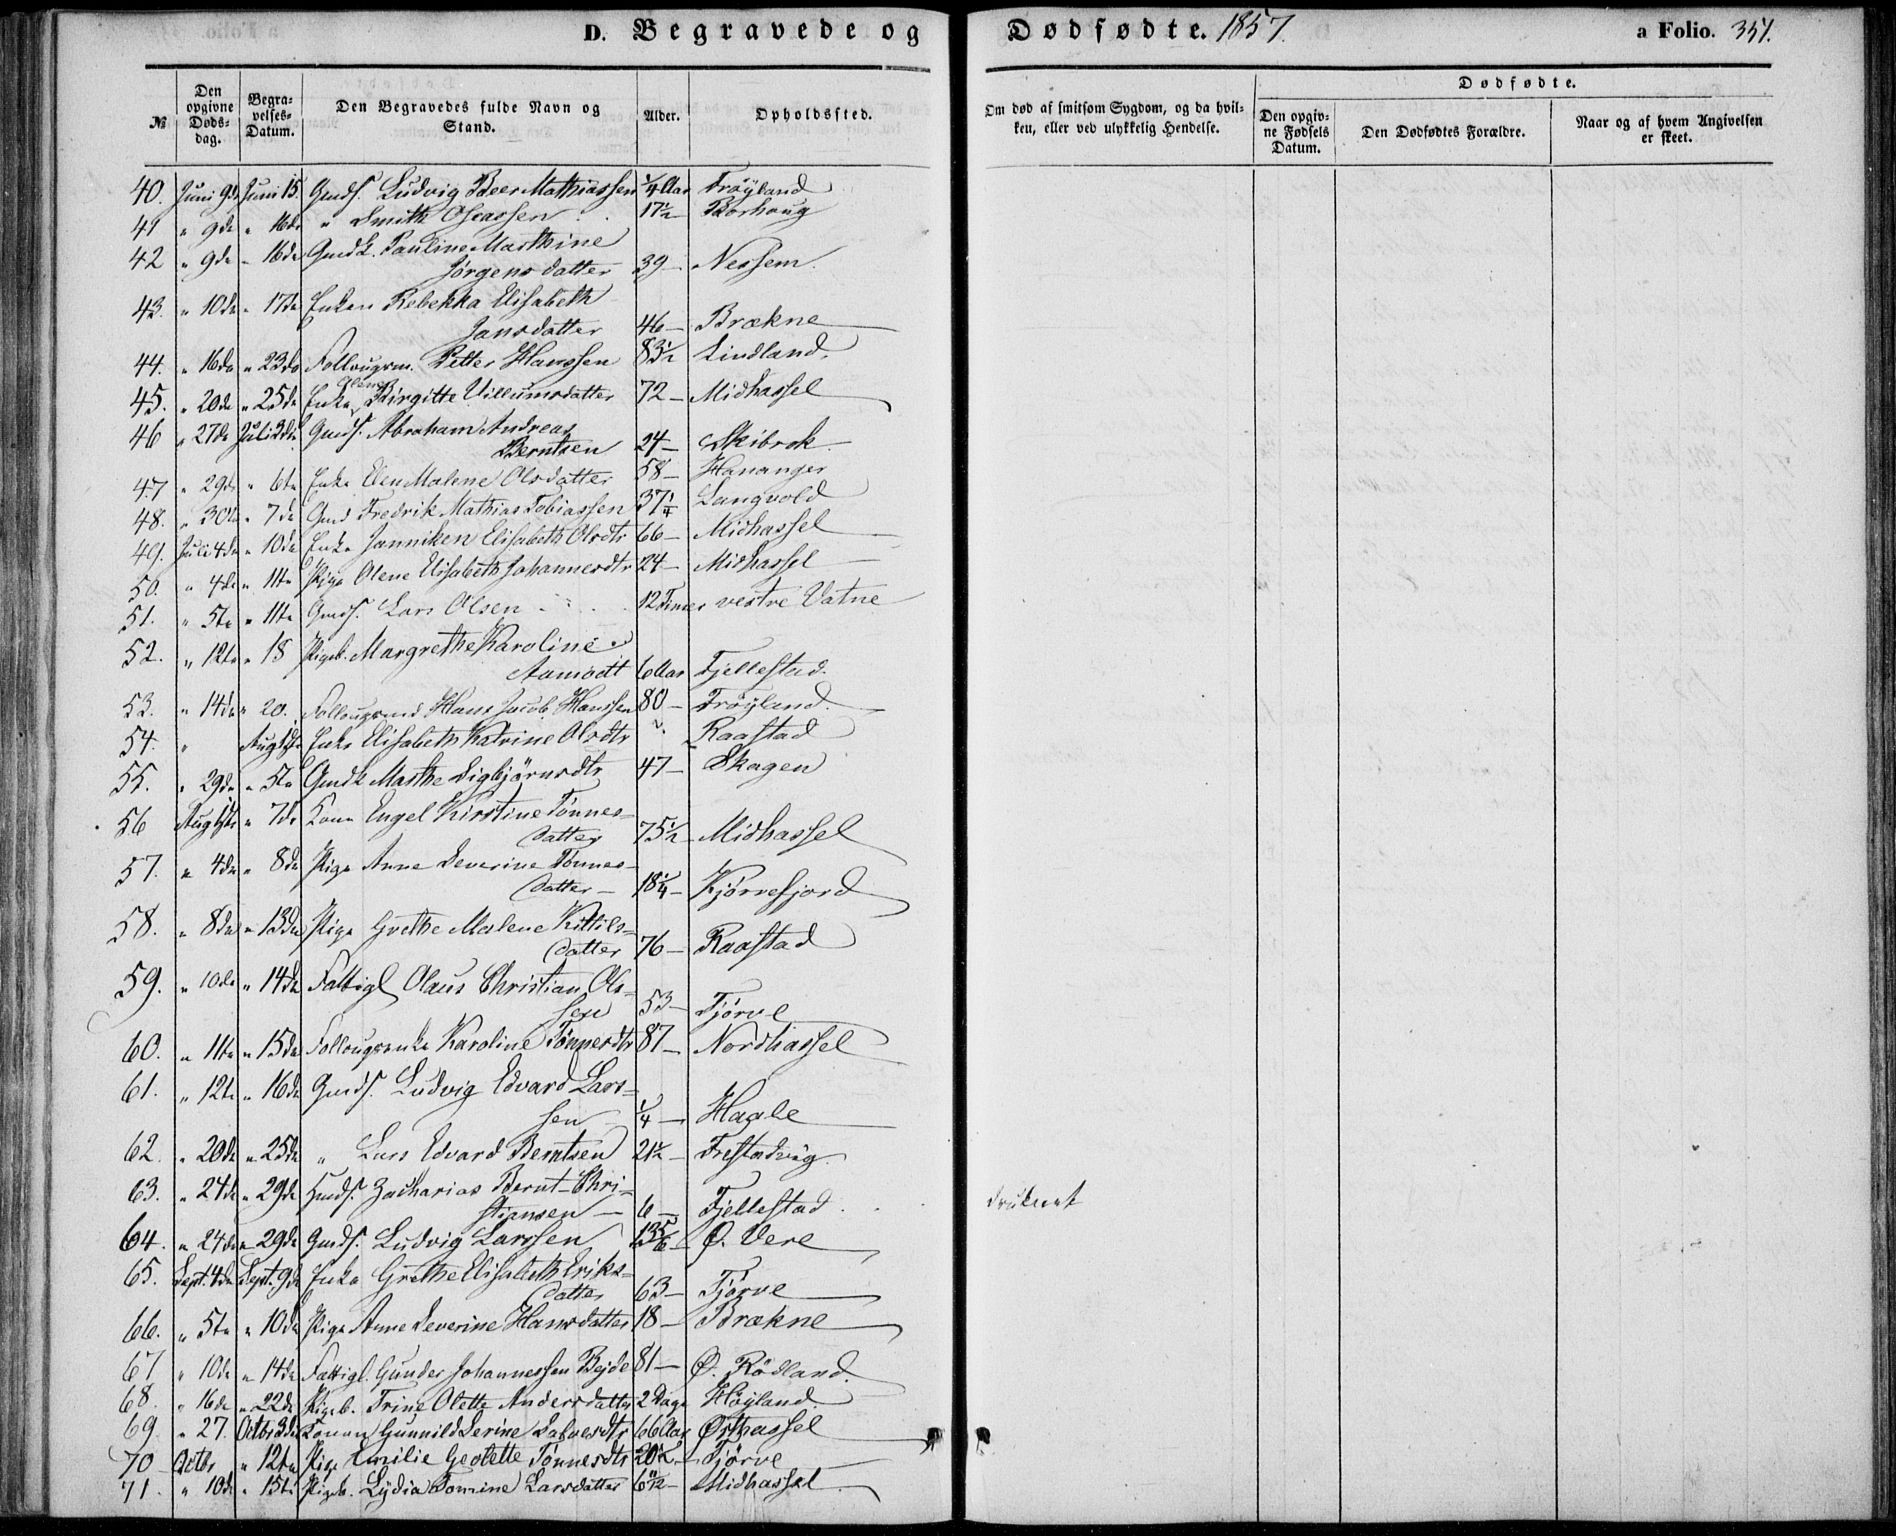 D. Begravede og
Dødfødte. 1857.
a Folio. 351.
№
Den opgivne Døds-dag.
Begra-velses-Datum.
Den Begravedes fulde Navn og Stand.
Alder.
Opholdssted.
Om død af smitsom Sygdom, og da hvil-ken, eller ved ulykkelig Hendelse.
Dødfødte.
Den opgiv-ne Fødsels Datum.
Den Dødfødtes Forældre.
Naar og af hvem Angivelsen er skeet.
40. Juni 9de Juni 15. Gmds. Ludvig Peer Mathiassen 1/4 Aar Frøyland
41 " 9de " 16de " Smith Oseassen 17 1/2 Borhoug
42 " 9de " 16de Gmdk. Pauline Marthine
Jørgensdatter 39 — Nessem.
43. " 10de " 17de Enken Rebekka Elisabeth
Jansdatter 46 — Brækne
44. " 16de " 23de Follougsm. Petter Hanssen 83 1/2 Lindland.
45. " 20de " 25de Enke Olene Birgitte Villumsdatter 72 — Midhassel
46 " 27de Juli 3die Gmds. Abraham Andreas
Berntsen 24 — Skibrok
47 " 29de " 6te Enke Elen Malene Olsdatter 58 — Hananger
48. " 30te " 7de Gmd Fredrik Mathias Tobiassen 37 1/4 Langvold
49. Juli 4de " 10de Enke Janniken Elisabeth Olsdtr 66 — Midhassel
50. " 4de " 11te Pige Olene Elisabeth Johannesdtr 24 — Midhassel
51. " 5te " 11te Gmds. Lars Olsen 12 Timer vestre Vatne
52. " 12te " 18 Pigeb. Margrethe Karoline
Aamodt 6 Aar Fjellestad.
53. " 14de " 20. Follougsmd Hans Jacob Hanssen 80 — Frøyland.
54. " Aug 1ste Enke Elisabeth Katrine Olsdtr Raastad
55. " 29de " 5te Gmdk Marthe Sigbjørnsdtr 47 — Skagen
56 Aug 1ste " 7de Kone Engel Kirstine Tønnes-
datter 75 1/2 Midhassel
57. " 4de " 8de Pige Anne Severine Tønnes-
datter — 18 1/4 — Kjørrefjord
58. " 8de " 13de Pige Grethe Malene Kittils-
datter 76 — Raastad
59. " 10de " 14de Fattigl Olaus Christian Ols-
sen 53 — Tjørve
60. " 11te " 15de Follougsenke Karoline Tønnesdtr 87 — Nordhassel
61. " 12te " 16de Gmds. Ludvig Edvard Lars-
sen 1/4 — Hagle
62. " 20de " 25de " Lars Edvard Berntsen 2 1/2 — Frestadvig.
63. " 24de " 29de Hmds. Zacharias Bernt Chri-
stiansen — 6 — Fjellestad. druknet
64. " 24de " 29de Gmds. Ludvig Larssen 13 5/6 — Ø. Vere
65. Sept. 4de Sept. 9de Enke Grethe Elisabeth Eriks-
datter 63 — Tjørve
66. " 5te " 10de Pige Anne Severine Hansdatter 18 — Brækne
67 " 10de " 14de Fattigl. Gunder Johannessen Bejde 81 — Ø. Rødland.
68. " 16de " 22de Pigeb. Trine Olette Andersdatter 2 Dage Høyland.
69. " 27. Octbr 3die Konen Gunnild Serine Salvesdtr 66 Aar Østhassel
70 Octbr " 12te Pige Emilie Geolette Tønnesdtr 20 1/2 — Tjørve
71. " 10de " 15te Pigeb. Lydia Tomine Larsdatter 6 1/2 — Midhassel